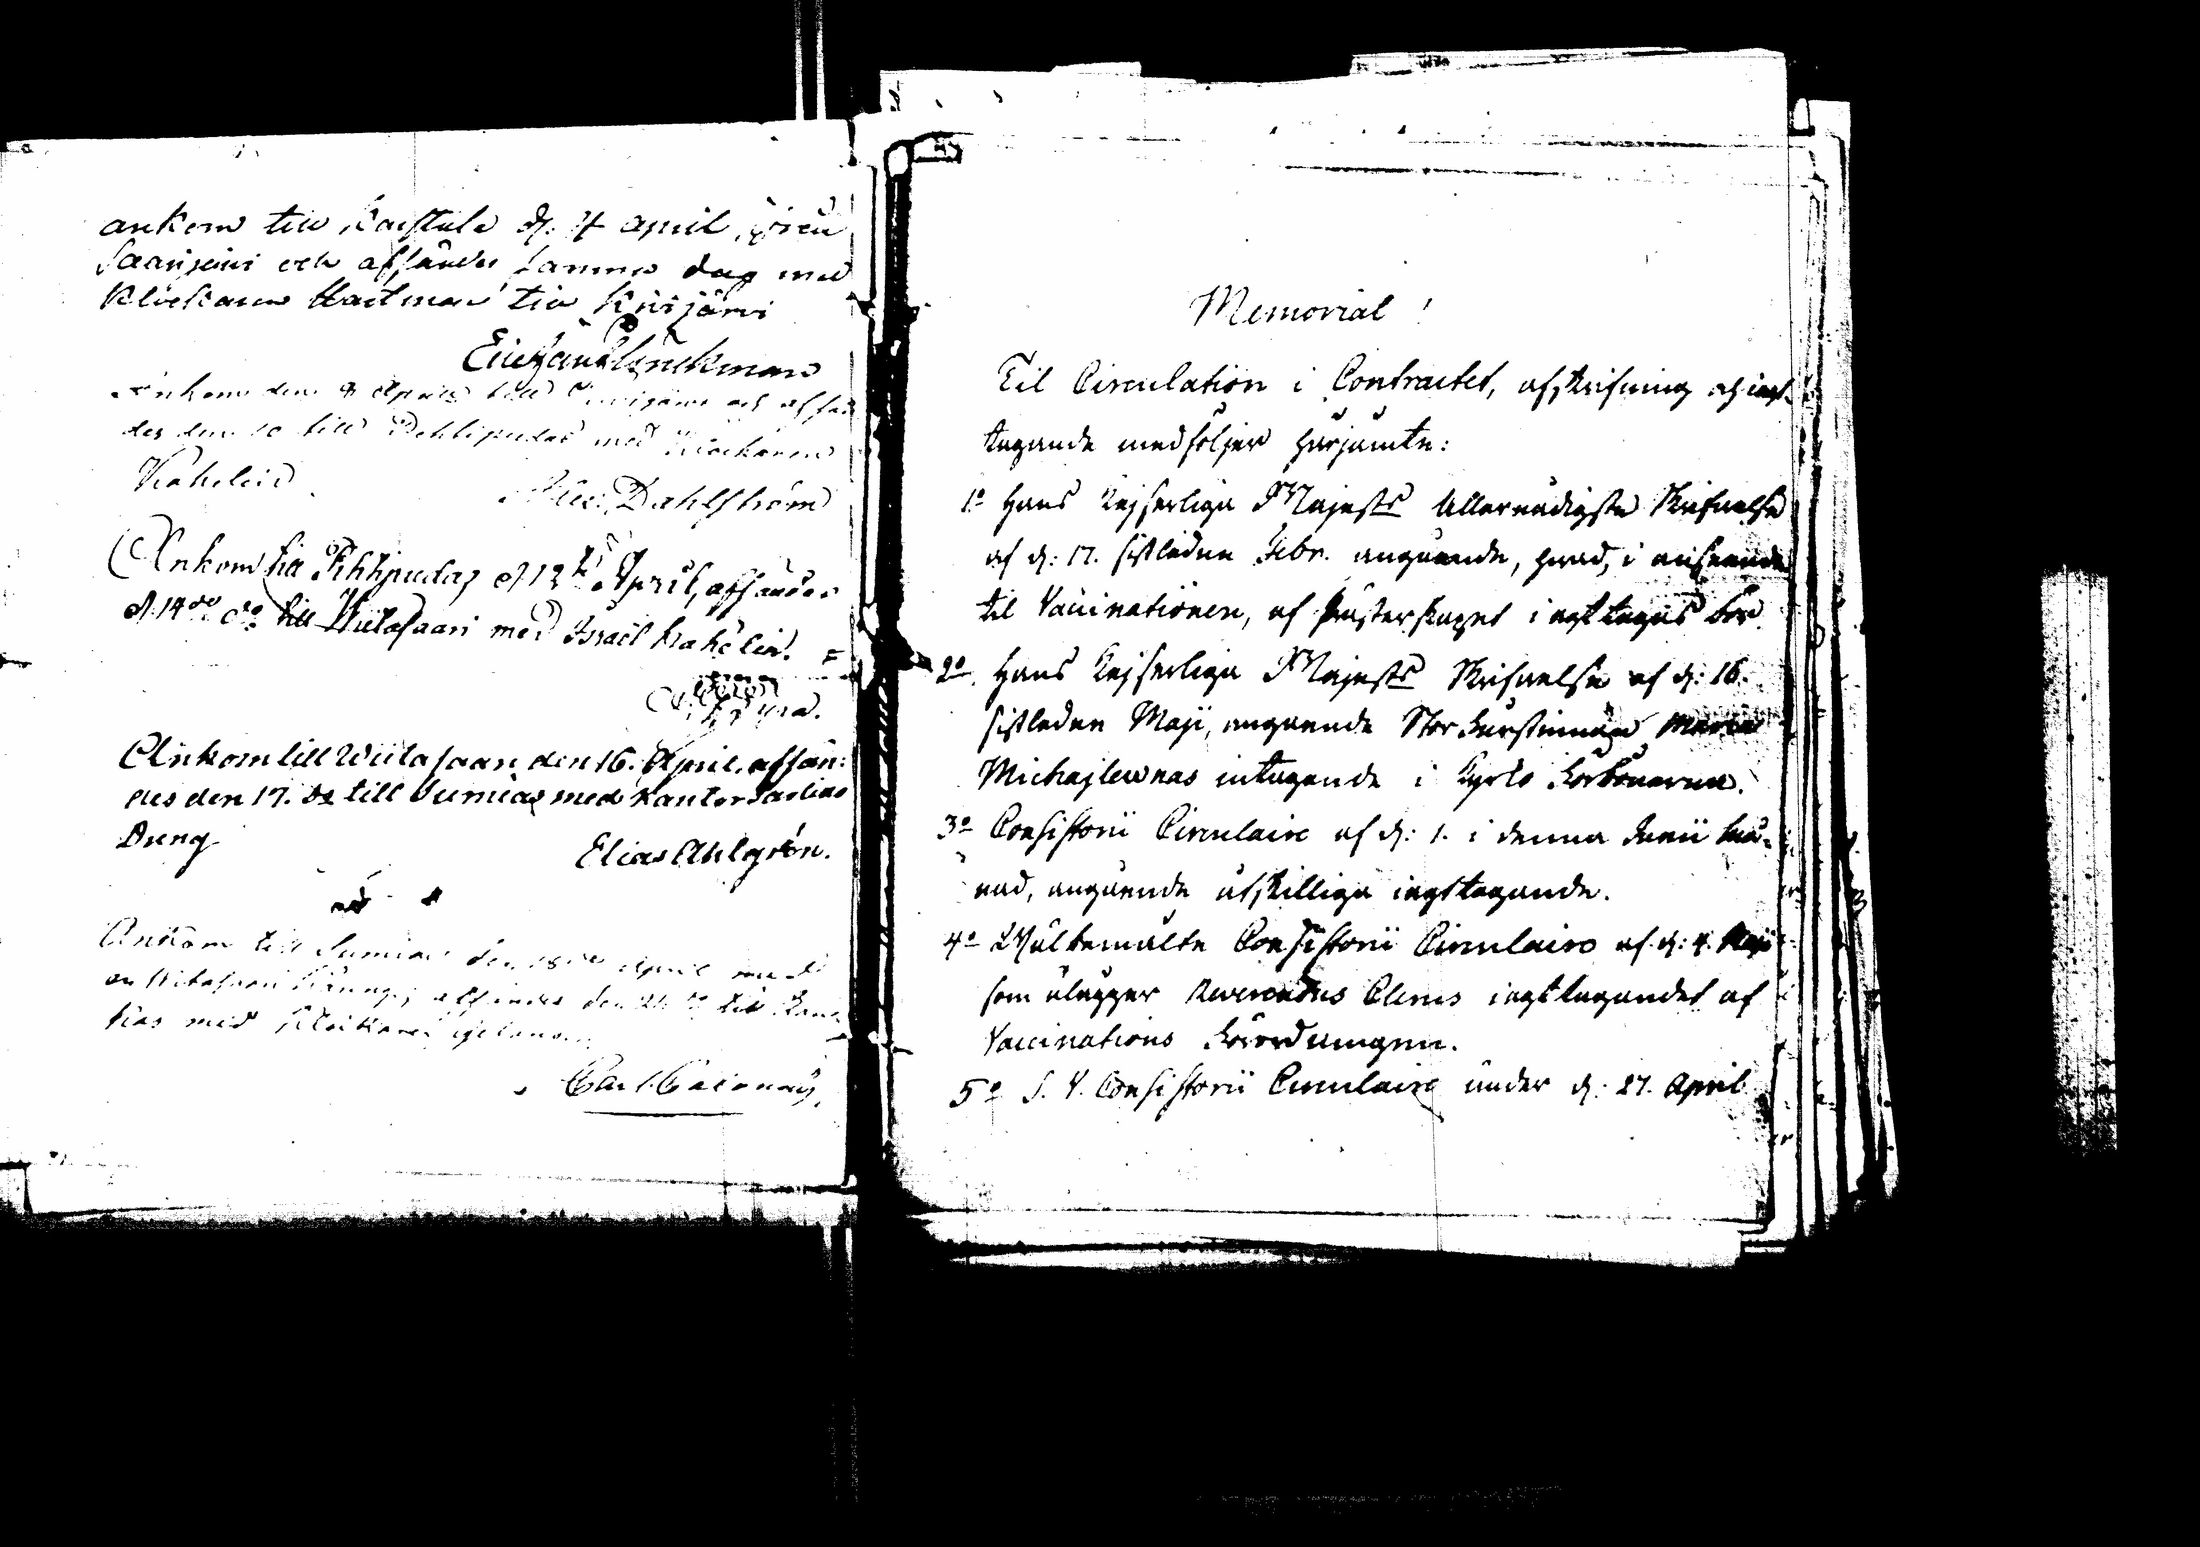 ankom till Karstula d. 4 April, från
Saarijervi och affändes samma dag med
Klockaren Hartman till Kivijärvi
Ankom den 8 April till Kivijärvi och affän
des den 10 till Pihtipudas med Klockaren
Kahelin
Dahlström
Ankom till Pihtipudas d 12 April, affändes
d. 14de do till Wiitasaari med Israel Kahelin.
Ankom till Wiitasaari den 16. April, affän:
des den 17. do till Sumiais med Kantor
Äreng
Elias Ahlgrén.
Ankom till Sumiais den 18de April med
affändes den till
med Klockaren
Carl Cajanus
Memorial!
Til Circulation i Contractet, afskrifning och iagt-
tagande medföljer härjämte:
1o Hans Kejserliga Majests Allernådigste Skrifvelse
af d: 17. sistledne Febr. angående, hvad, i anseende
til Vaccinationen, af Presterskapet i agttagas bör.
2o Hans Kejserliga Majests Skrifvelse af d: 16.
sistleden Maji, angående Stor Furstinnan Maria
Michajlewnas intagande i Kyrko Förbönerna.
3o Consistorii Circulaire af d: 1. i denna Junii må-
nad, angående åtskilliga iagttagande.
4o Wälbemälte Consistorii Circulaire af d: 4. Maji
som ålägger Reverendus Clerus iagttagandet af
Vaccinations Förordningen.
5o S. V. Consistorii Circulaire under d: 27. April